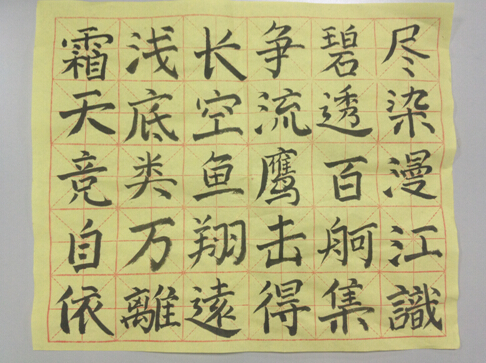 尽染漫江識
碧透百舸集
争流鹰击得
长空鱼翔遠
浅底类万離
霜天竞自依